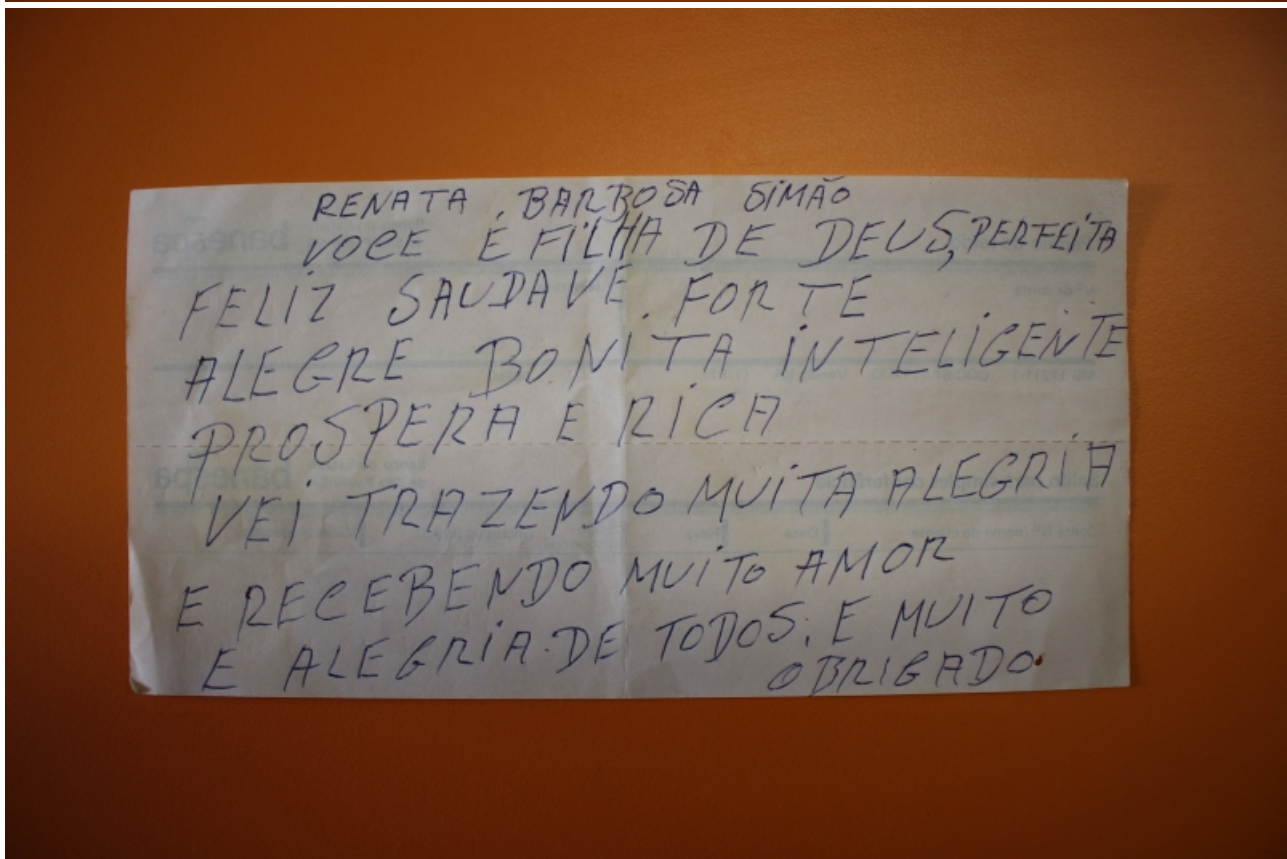 RENATA. BARBOSA SIMÃO
VOCE É FILHA DE DEUS, PERFEITA
FELIZ SAUDAVE. FORTE
ALEGRE BONITA INTELIGENTE
PROSPERA E RICA
VEI TRAZENDO MUITA ALEGRIA
E RECEBENDO MUITO AMOR
E ALEGRIA. DE TODOS. E MUITO
OBRIGADO.